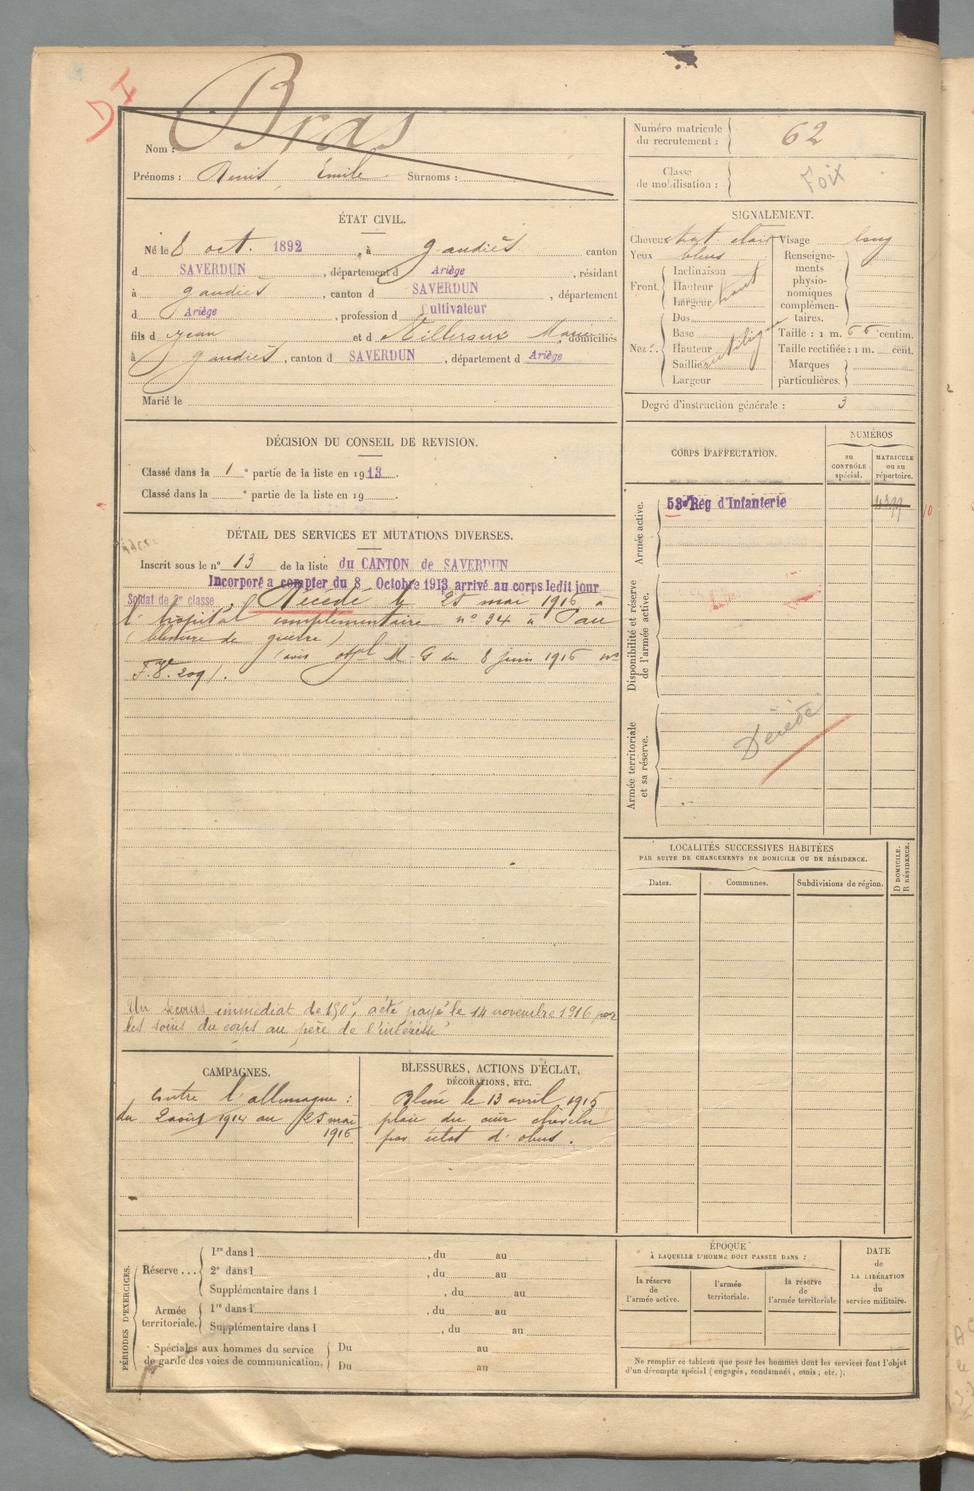 D I
Bras
Nom :
Prénoms : Denis Emile Surnoms :
ÉTAT CIVIL.
Né le 8 oct. 1892, à Gaudiès canton
d SAVERDUN, département d Ariège, résidant
à Gaudiès, canton d SAVERDUN, département
d Ariège, profession d Cultivateur
fils d Jean et d Marie domiciliés
à Gaudiès, canton d SAVERDUN, département d Ariège
Marié le
DÉCISION DU CONSEIL DE REVISION.
Classé dans la 1e partie de la liste en 1913.
Classé dans la e partie de la liste en 19
DÉTAIL DES SERVICES ET MUTATIONS DIVERSES.
Inscrit sous le n° 13 de la liste du CANTON de SAVERDUN
Incorporé a compter du 8 Octobre 1913, arrivé au corps ledit jour
Soldat de 2e classe Décédé le 25 mai 1916 à
l'hopital complémentaire n° 34 à Pau
(blessure de guerre)
(avis offel M. G du 8 juin 1916 n°
F.8. 209).
Un secours immédiat de 150f, a été payé le 14 novembre 1916 par
les soins du corps au père de l'intéressé
CAMPAGNES.
Contre l'allemagne :
du 2 août 1914 au 25 mai
1916
BLESSURES, ACTIONS D'ÉCLAT,
DÉCORATIONS, ETC.
Blessé le 13 avril 1915
plaie du cuir chevelu
par éclat d'obus.
PÉRIODES D'EXERCICES.
Réserve ...
1re dans l , du au
2e dans l , du au
Supplémentaire dans l , du au
Armée territoriale.
1re dans l , du au
Supplémentaire dans l , du au
Spéciales aux hommes du service
de garde des voies de communication.
Du au
Du au
Numéro matricule
du recrutement :
62
Classe
de mobilisation :
Foix
SIGNALEMENT.
Cheveux chat. clair Visage long
Yeux bleus
Front.
Inclinaison
Hauteur
Largeur haut
Nez.
Dos
Base
Hauteur
Saillie
Largeur
Renseignements
physionomiques
complémentaires.
Taille : 1 m. 66 centim.
Taille rectifiée : 1 m. cent.
Marques
particulières.
Degré d'instruction générale : 3
CORPS D'AFFECTATION.
NUMÉROS
au
CONTRÔLE
spécial.
MATRICULE
ou au
répertoire.
Armée active.
53e Rég d'Infanterie
Disponibilité et réserve
de l'armée active.
Armée territoriale
et sa réserve.
Décédé
LOCALITÉS SUCCESSIVES HABITÉES
PAR SUITE DE CHANGEMENTS DE DOMICILE OU DE RÉSIDENCE.
Dates.
Communes.
Subdivisions de région.
D DOMICILE.
R RÉSIDENCE.
ÉPOQUE
À LAQUELLE L'HOMME DOIT PASSER DANS :
la réserve
de
l'armée active.
l'armée
territoriale.
la réserve
de
l'armée territoriale
DATE
de
LA LIBÉRATION
du
service militaire.
Ne remplir ce tableau que pour les hommes dont les services font l'objet
d'un décompte spécial (engagés, condamnés, omis, etc.).